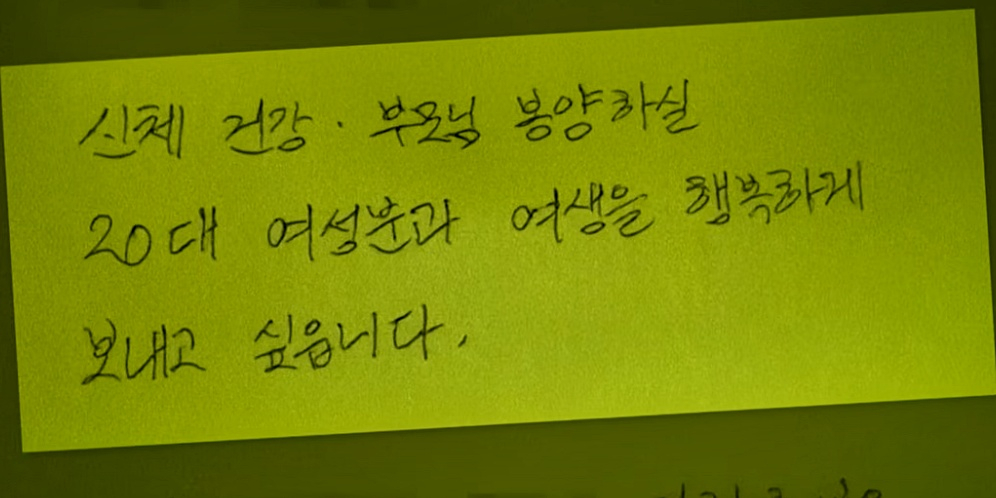 신체 건강·부모님 봉양하실
20대 여성분과 여생을 행복하게
보내고 싶읍니다.